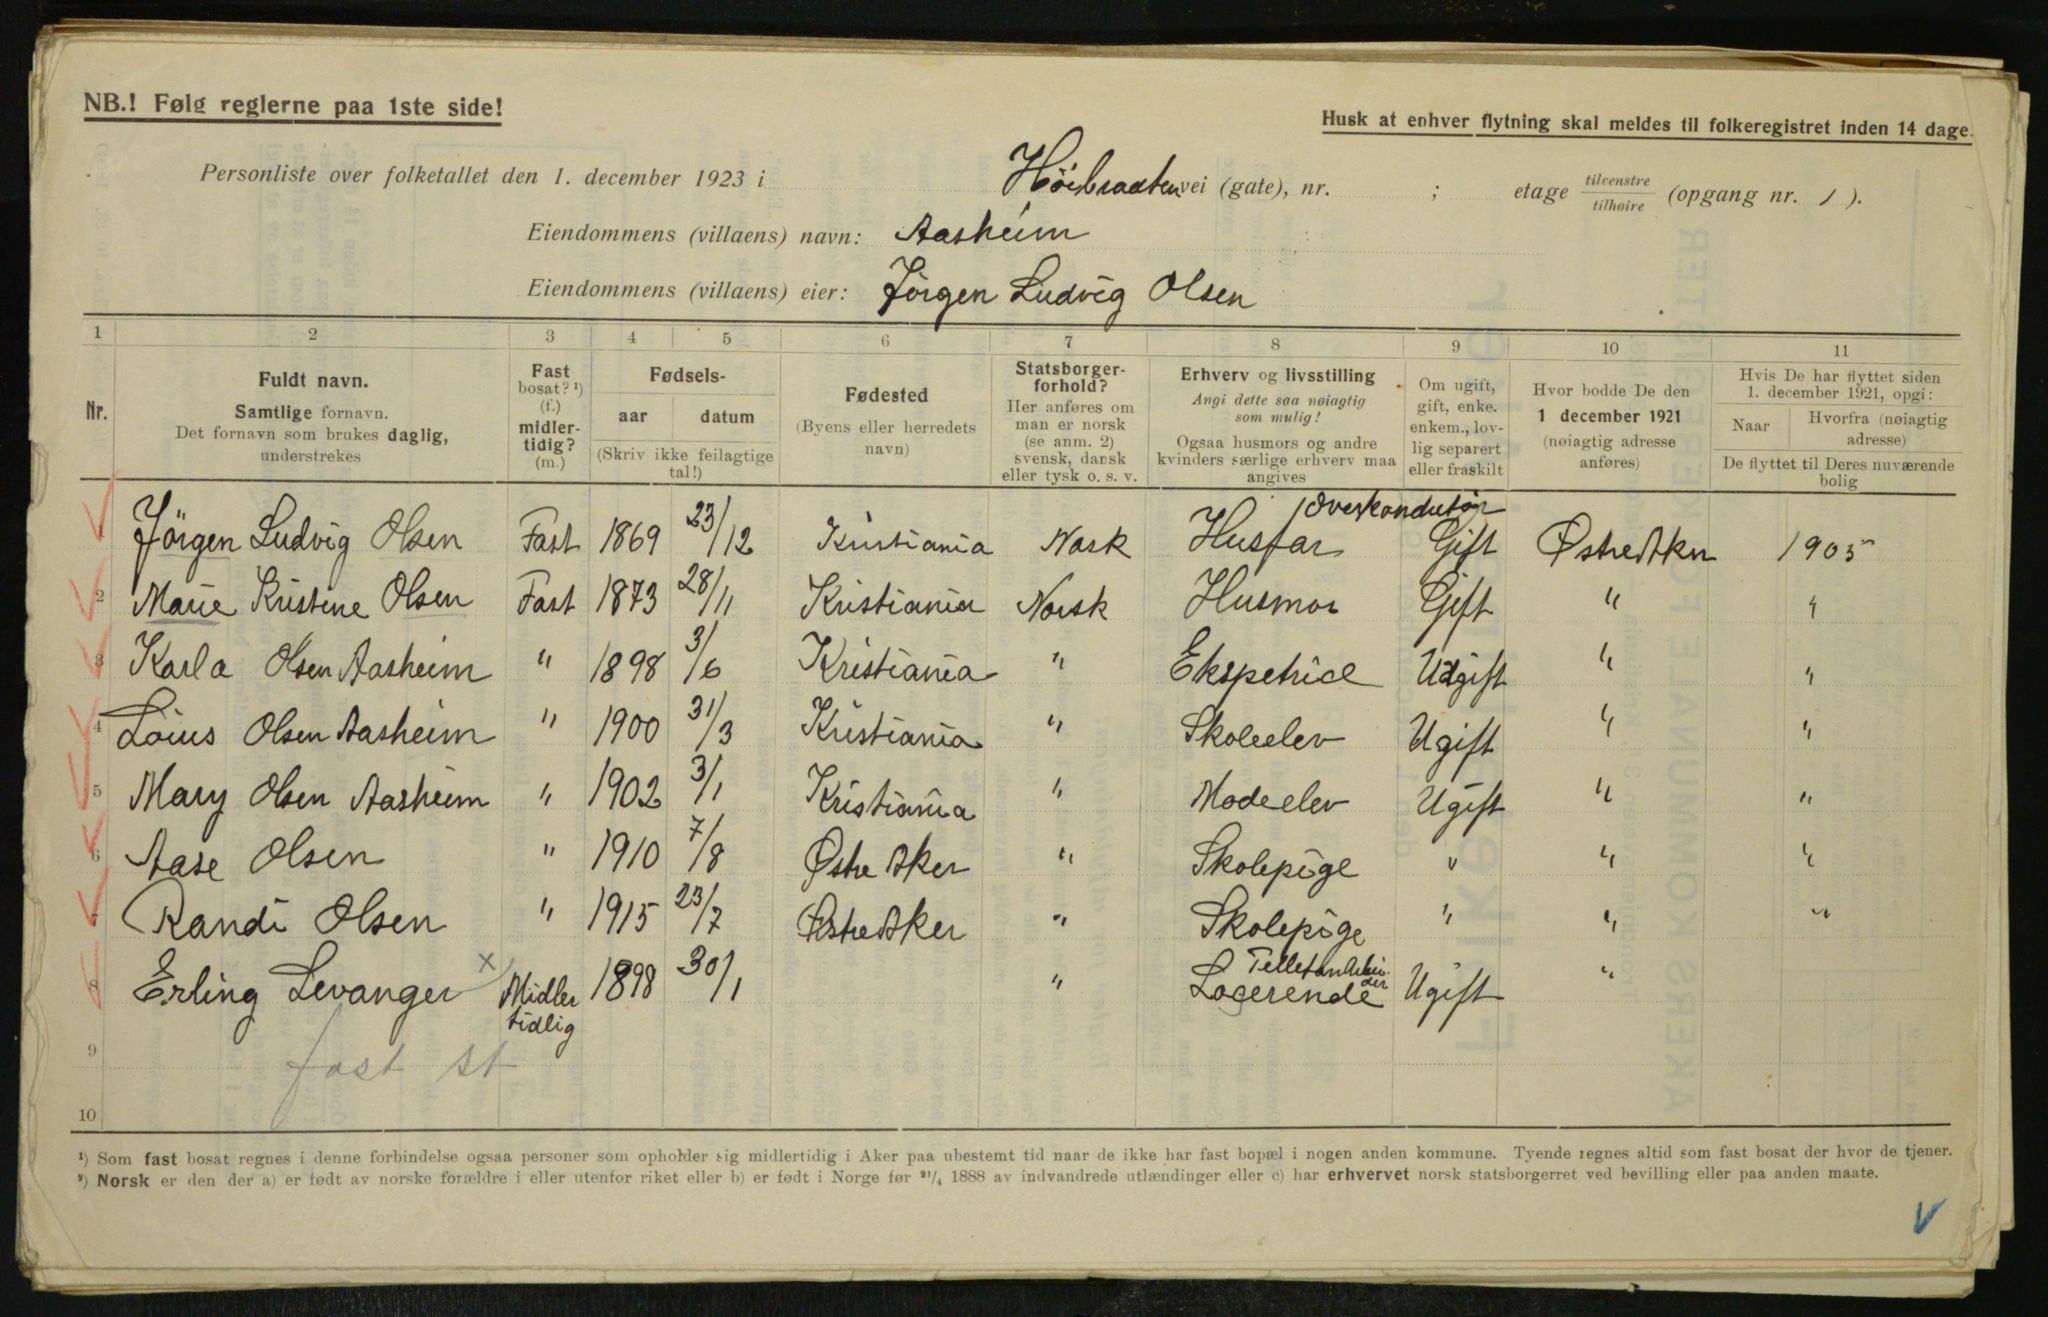 NB.! Følg reglerne paa 1ste side!
Husk at enhver flytning skal meldes til folkeregistret inden 14 dage.
Personliste over folketallet den 1. december 1923 i Høibraaten vei (gate), nr. ; etage tilvenstre / tilhøire (opgang nr. 1 ).
Eiendommens (villaens) navn: Aasheim
Eiendommens (villaens) eier: Jörgen Ludvig Olsen
1 2 3 4 5 6 7 8 9 10 11
Nr.
Fuldt navn.
Samtlige fornavn.
Det fornavn som brukes daglig,
understrekes
Fast
bosat? ¹)
(f.)
midler-
tidig?
(m.)
Fødsels-
aar datum
(Skriv ikke feilagtige
tal!)
Fødested
(Byens eller herredets
navn)
Statsborger-
forhold?
Her anføres om
man er norsk
(se anm. 2)
svensk, dansk
eller tysk o. s. v.
Erhverv og livsstilling
Angi dette saa nøiagtig
som mulig!
Ogsaa husmors og andre
kvinders særlige erhverv maa
angives
Om ugift,
gift, enke.
enkem., lov-
lig separert
eller fraskilt
Hvor bodde De den
1 december 1921
(nøiagtig adresse
anføres)
Hvis De har flyttet siden
1. december 1921, opgi:
Naar Hvorfra (nøiagtig
adresse)
De flyttet til Deres nuværende
bolig
1 Jörgen Ludvig Olsen Fast 1869 23/12 Kristiania Norsk Husfar / Overkondutör Gift Østre Aker 1905
2 Marie Kristine Olsen Fast 1873 28/11 Kristiania Norsk Husmor Gift " "
3 Karla Olsen Aasheim " 1898 3/6 Kristiania " Ekspetrice Udgift " "
4 Loius Olsen Aasheim " 1900 31/3 Kristiania " Skoleelev Ugift " "
5 Mary Olsen Aasheim " 1902 3/1 Kristiania " Modeelev Ugift " "
6 Aase Olsen " 1910 7/8 Østre Aker " Skolepige " " "
7 Randi Olsen " 1915 23/7 Østre Aker " Skolepige " " "
8 Erling Levanger x Midler 1898 30/1 " Logerende Ugift "
tidlig
9 fast st
10
¹) Som fast bosat regnes i denne forbindelse ogsaa personer som opholder sig midlertidig i Aker paa ubestemt tid naar de ikke har fast bopæl i nogen anden kommune. Tyende regnes altid som fast bosat der hvor de tjener.
²) Norsk er den der a) er født av norske forældre i eller utenfor riket eller b) er født i Norge før ²¹/₄ 1888 av indvandrede utlændinger eller c) har erhvervet norsk statsborgerret ved bevilling eller paa anden maate.